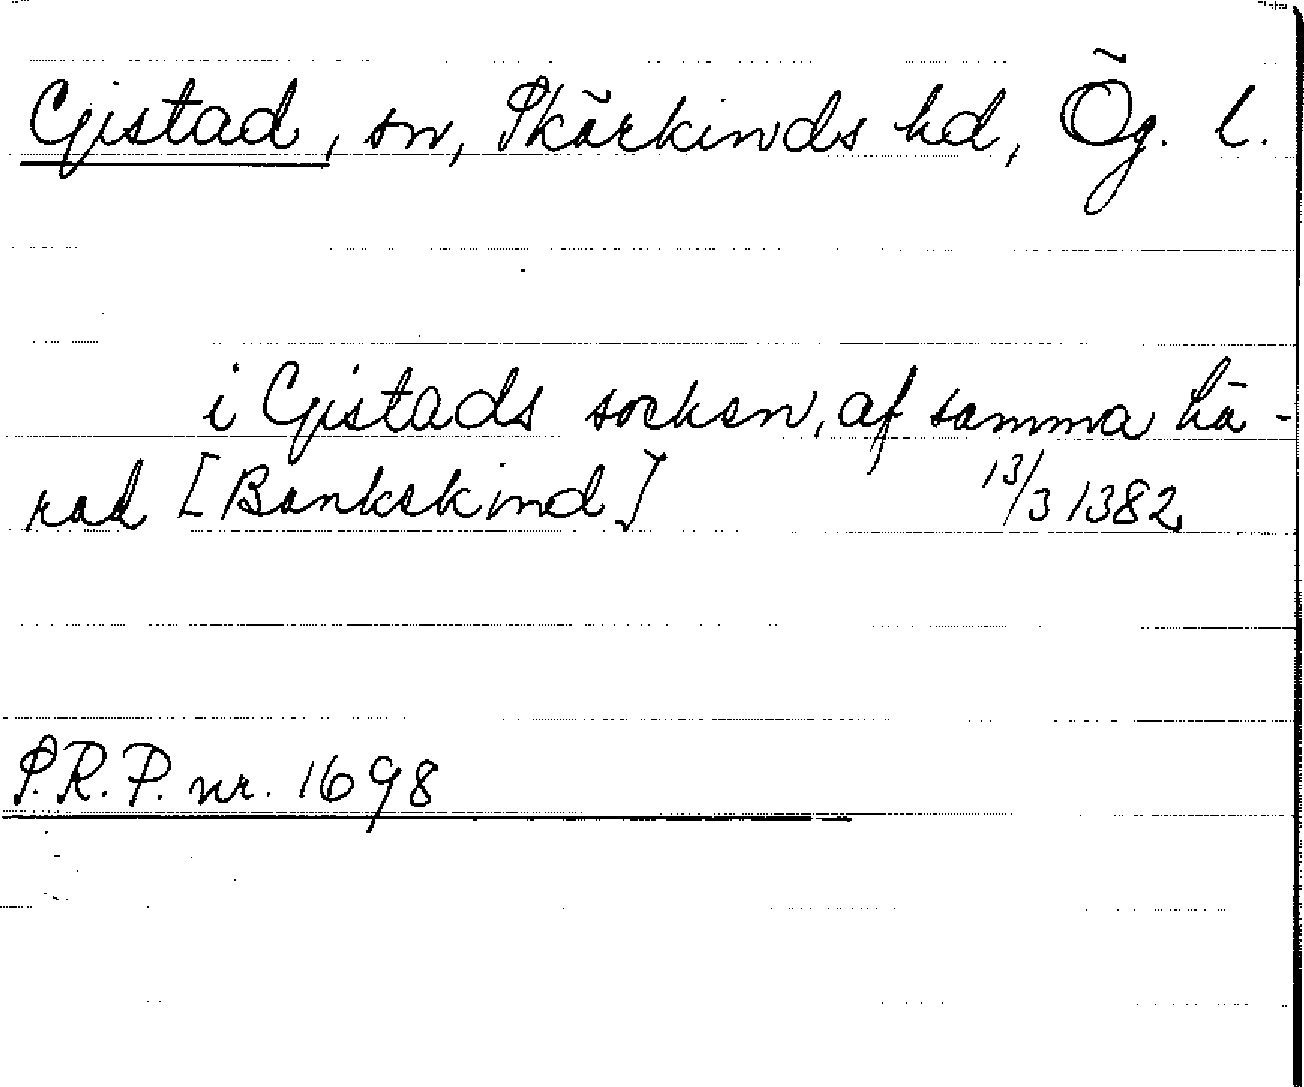 Gistad, sn, Skärkinds hd, Ög. l.
i Gistads socken, af samma hä-
rad [Bankekind] 13/3 1382
S.R.P. nr. 1698